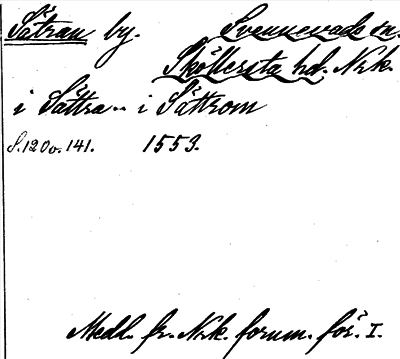 Såtran by. Svennevads sn.
Sköllersta hd. Nrk.
i Såttra - i Såttrom
S. 120 o. 141. 1553.
Medl. fr. Nrk. fornm. för. I.